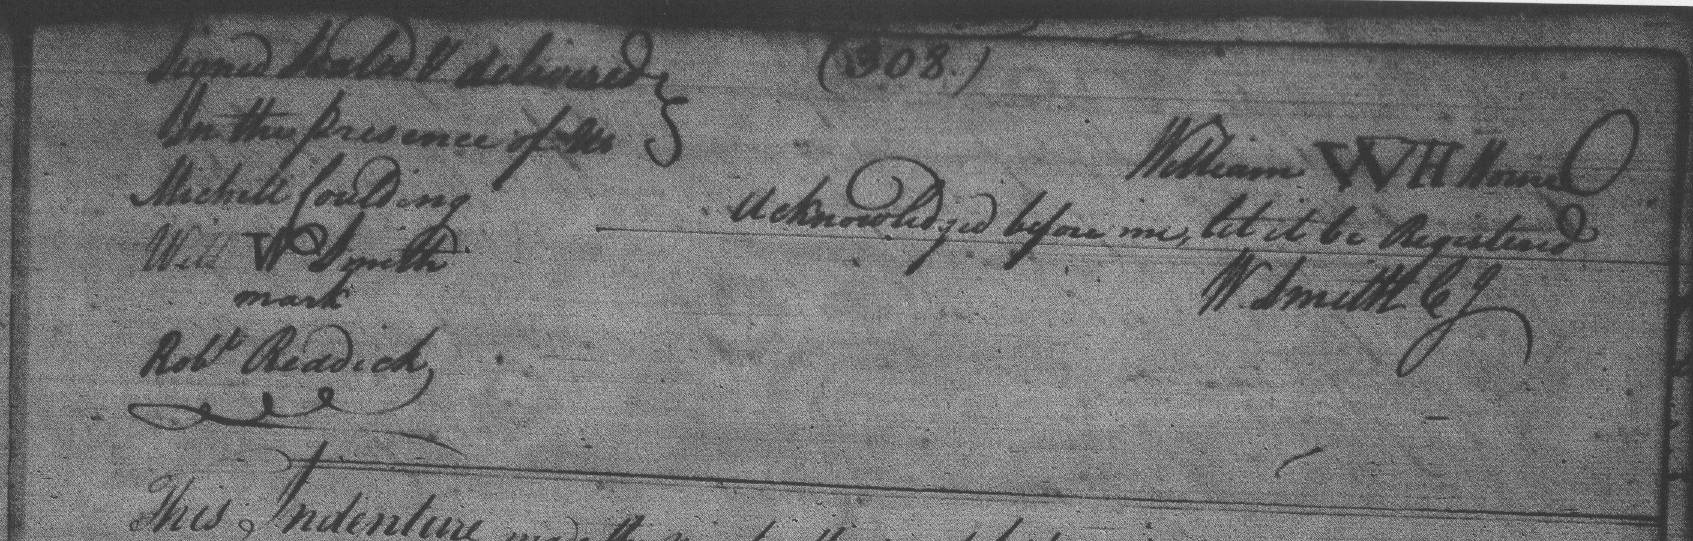 (308.)
Signed Sealed & delivered
In the presence of us
William W H Howe
Michell Goulding
Acknowledged before me, let it be Registered
Will W Smith
W. Smith C J
mark
Robt Reddick
This Indenture made the